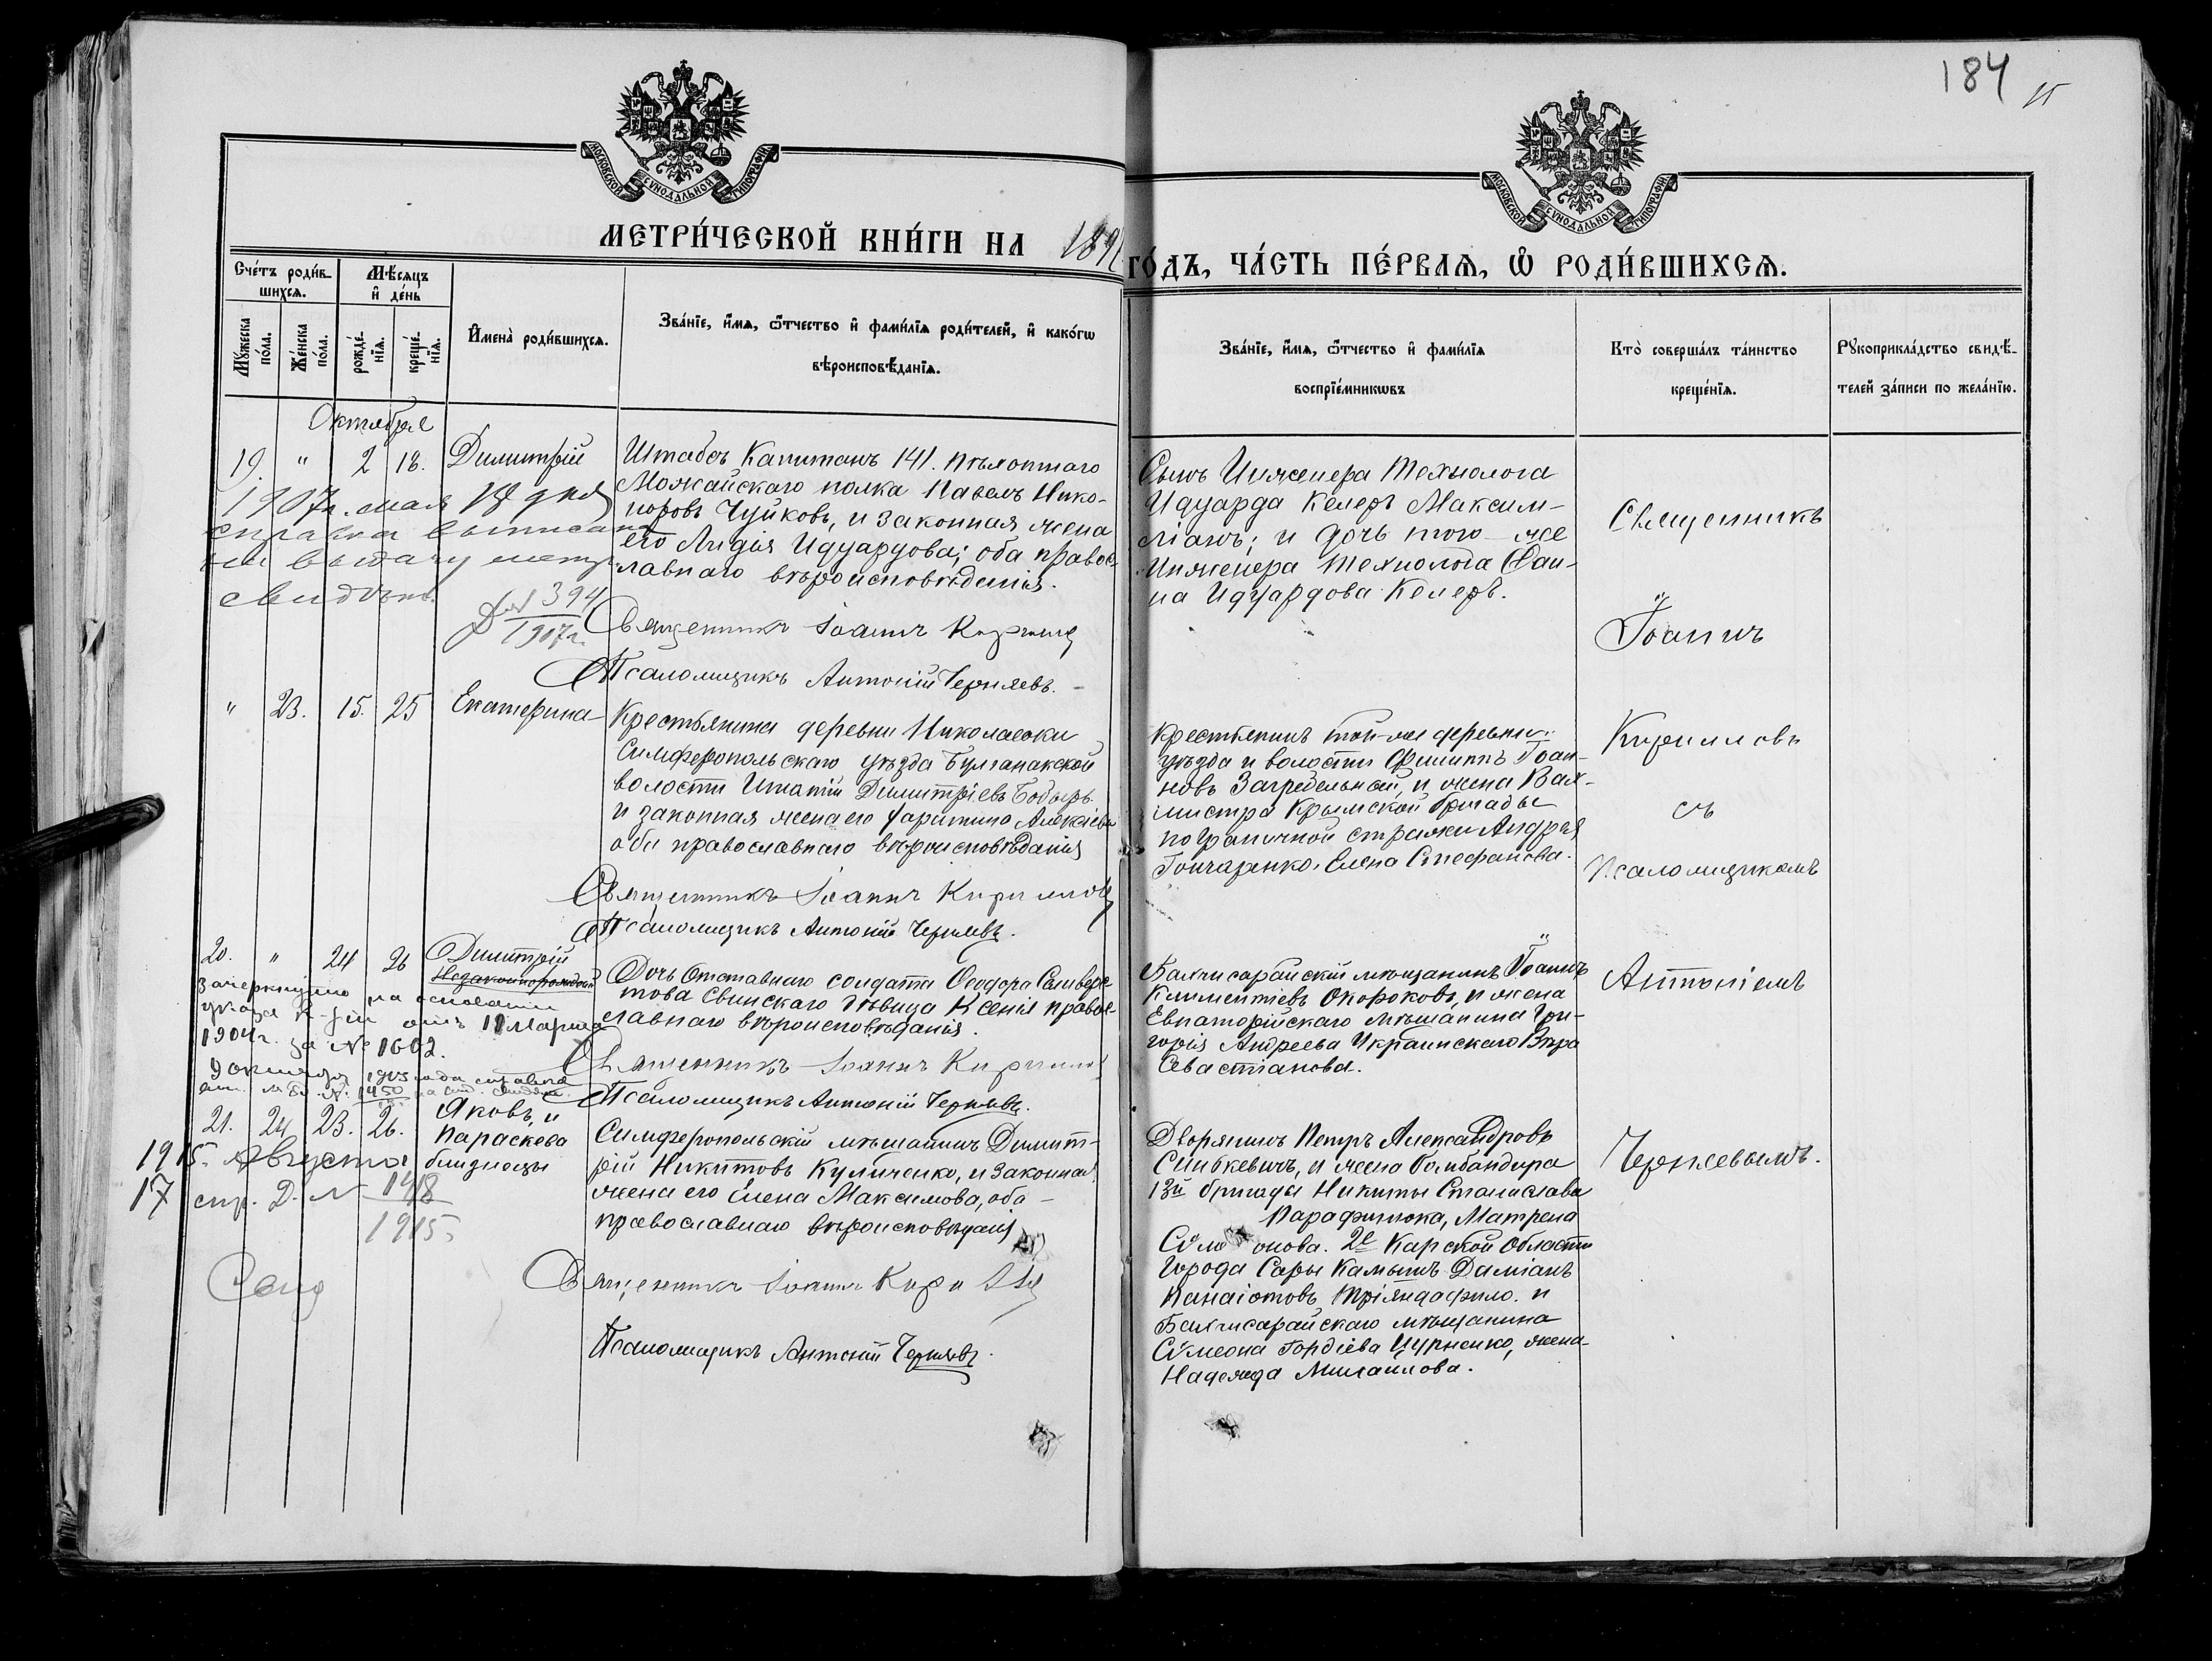 184
МОСКОВСКОЙ СѴНОДАЛЬНОЙ ТИПОГРАФІИ
МОСКОВСКОЙ СѴНОДАЛЬНОЙ ТИПОГРАФІИ
МЕТРИ́ЧЕСКОЙ КНИ́ГИ НА 189
ГО́ДЪ, ЧА́СТЬ ПЕ́РВАѦ, Ѽ РОДИ́ВШИХСѦ.
Сче́тъ роди́в-
шихсѧ.
Мѣ́сѧцъ
и҆ де́нь
Мꙋ́жеска по́ла.
Же́нска по́ла.
рожде́-
нїѧ.
креще́-
нїѧ.
И҆мена̀ роди́вшихсѧ.
Зва́нїе, и҆́мѧ, ѻ҆́тчество и҆ фами́лїѧ роди́телей, и҆ како́гѡ
вѣроисповѣ́данїѧ.
Зва́нїе, и҆́мѧ, ѻ҆́тчество и҆ фами́лїѧ
воспрїе́мникѡвъ
Кто̀ соверша́лъ та́инство
креще́нїѧ.
Рꙋкоприкла́дство свидѣ́-
телей за́писи по жела́нїю.
Октября
19. " 2 18. Димитрій
Штабсъ Капитанъ 141. пѣхотнаго
Можайскаго полка Павелъ Нико-
норовъ Чуйковъ, и законная жена
его Лидія Идуардова; оба правос-
лавнаго вѣроисповѣданія.
1907г. мая 18 дня
справка выписана
на выдачу метр.
свидѣт.
Д № 394
1907г.
Священникъ Іоаннъ Кирилловъ
Псаломщикъ Антоній Черняевъ.
Сынъ Инженера Технолога
Идуарда Келеръ Максим-
ліанъ; и дочь того-же
Инженера Технолога Фан-
на Идуардова Келеръ.
Священникъ
Іоаннъ
" 23. 15. 25 Екатерина
Крестьянина деревни Николаевки
Симферопольскаго уѣзда Булганакской
волости Игнатій Димитріевъ Бодыръ
и законная жена его Харитина Алексіева
оба православнаго вѣроисповѣданія
Священникъ Іоаннъ Кирилловъ
Псаломщикъ Антоній Черняевъ.
Крестьянинъ той-же деревни
уѣзда и волости Филиппъ Іоан-
новъ Загредельный, и жена Вах-
мистра Крымской бригады
пограничной стражи Андрея
Гончаренко, Елена Стефанова.
Кирилловъ
съ
Псаломщикомъ
20. " 24 26 Димитрій
незаконнорожденный
зачеркнуто на основаніи
указа К-ріи отъ 11 Марта
1904г. за № 1602.
9 октября 1915 года справка
Дочь Отставнаго солдата Ѳеодора Сильверс-
това Свинскаго дѣвица Ксенія правос-
лавнаго вѣроисповѣданія.
Священникъ Іоаннъ Кирилловъ
Псаломщикъ Антоній Черняевъ.
Бахчисарайскій мѣщанинъ Іоаннъ
Климентіевъ Окороковъ, и жена
Евпаторійскаго мѣщанина Гри-
горія Андреева Украинскаго Вѣра
Севастіанова.
Антоніемъ
21. 24 23. 26. Яковъ, и
Параскева
близнецы
1915. Августа
17 спр. Д. № 1418
1915
Симферопольскій мѣщанинъ Димит-
рій Никитовъ Куличенко, и законная
жена его Елена Максимова, оба
православнаго вѣроисповѣданія
Священникъ Іоаннъ Кирилловъ
Псаломщикъ Антоній Черняевъ.
Дворянинъ Петръ Александровъ
Синькевичъ, и жена Бомбандира
13й бригады Никиты Станислава
Парафинюка, Матрена
Сѵмеонова. 2е Карской Области
Города Сары Камышъ Даміанъ
Панаіотовъ Тріяндафило. и
Бахчисарайскаго мѣщанина
Сѵмеона Гордіева Цурненко, жена
Надежда Михаилова.
Черняевымъ.